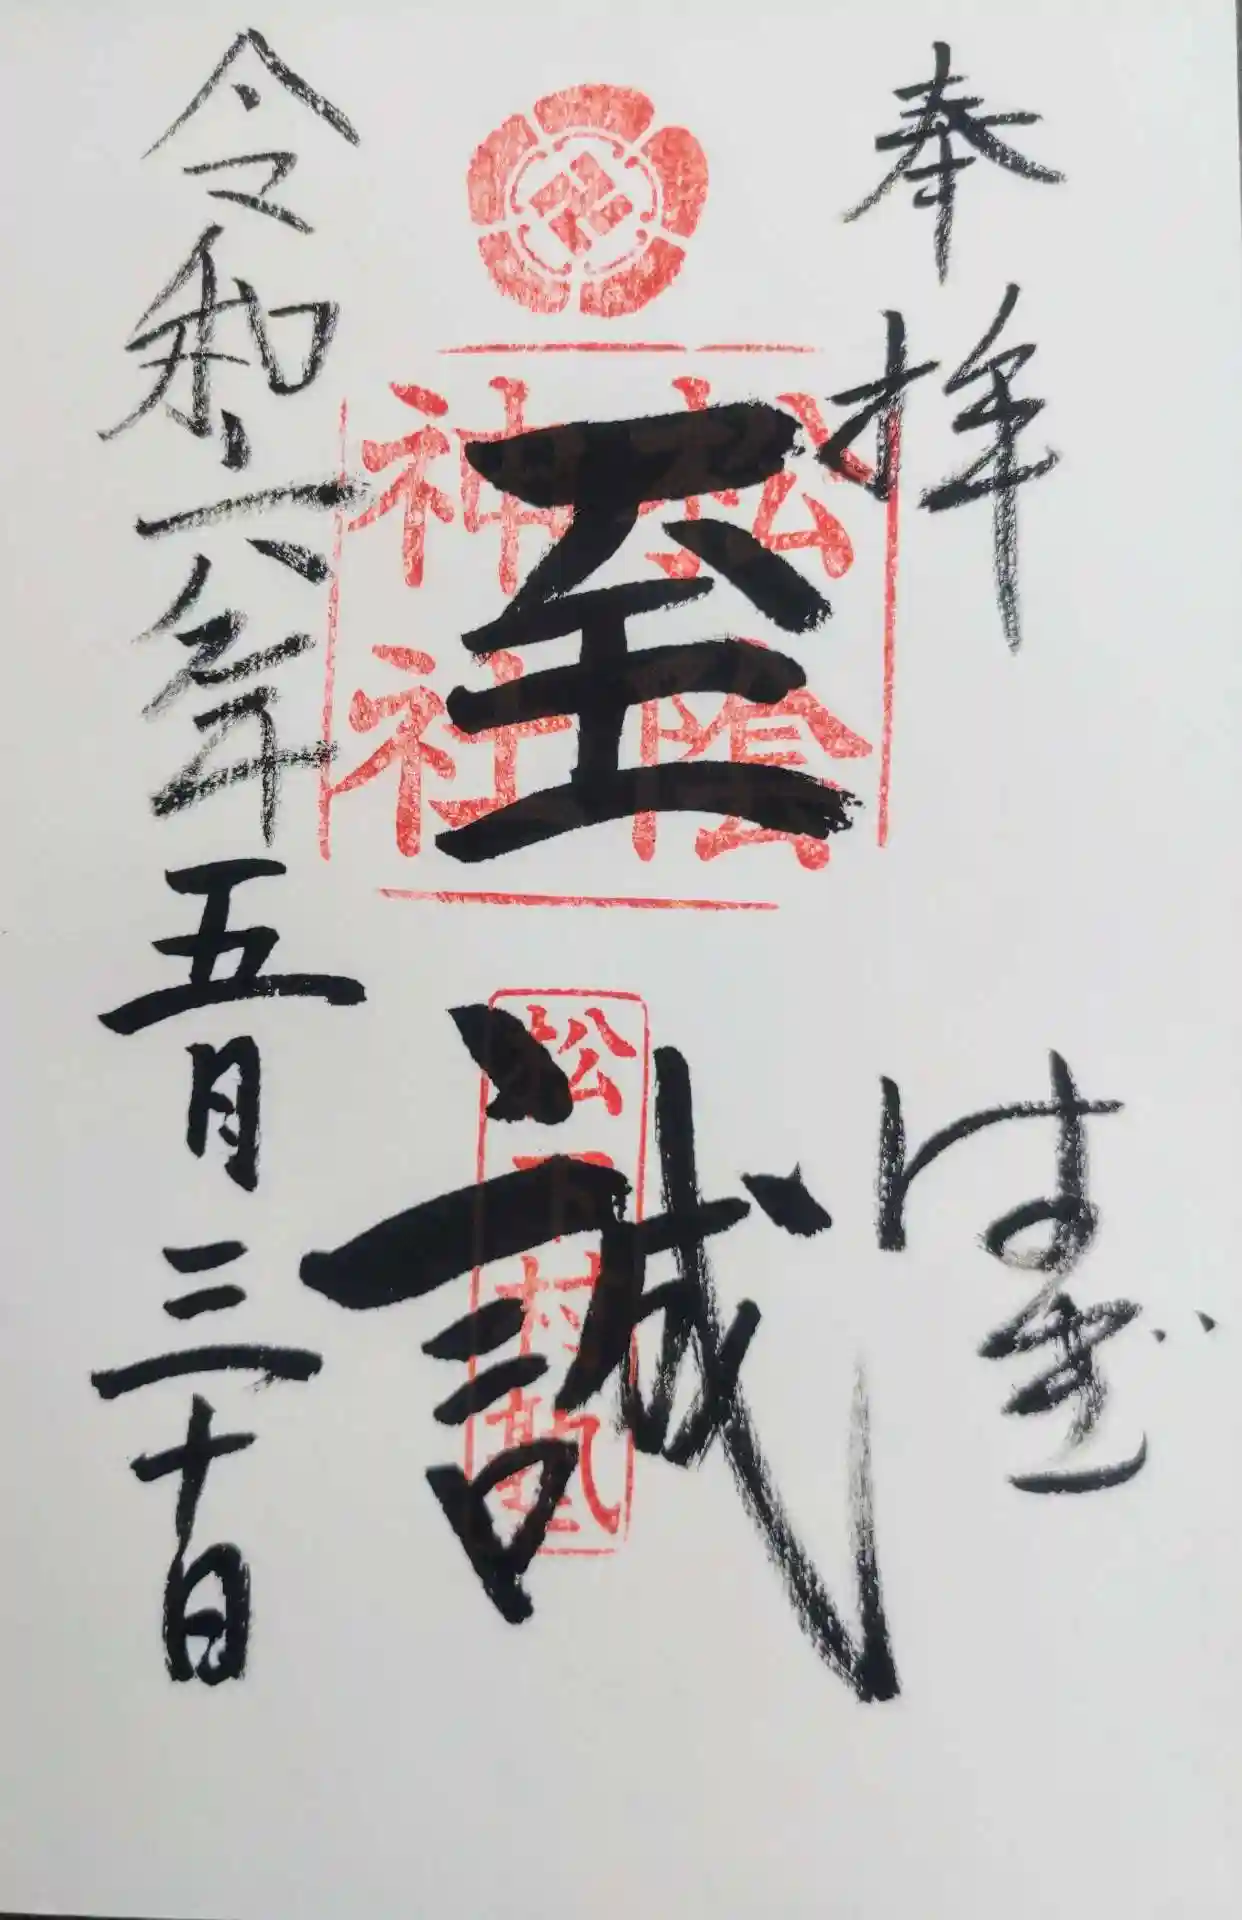 奉拝 はぎ
松陰
神社
至誠
松下村塾
令和六年五月三十日